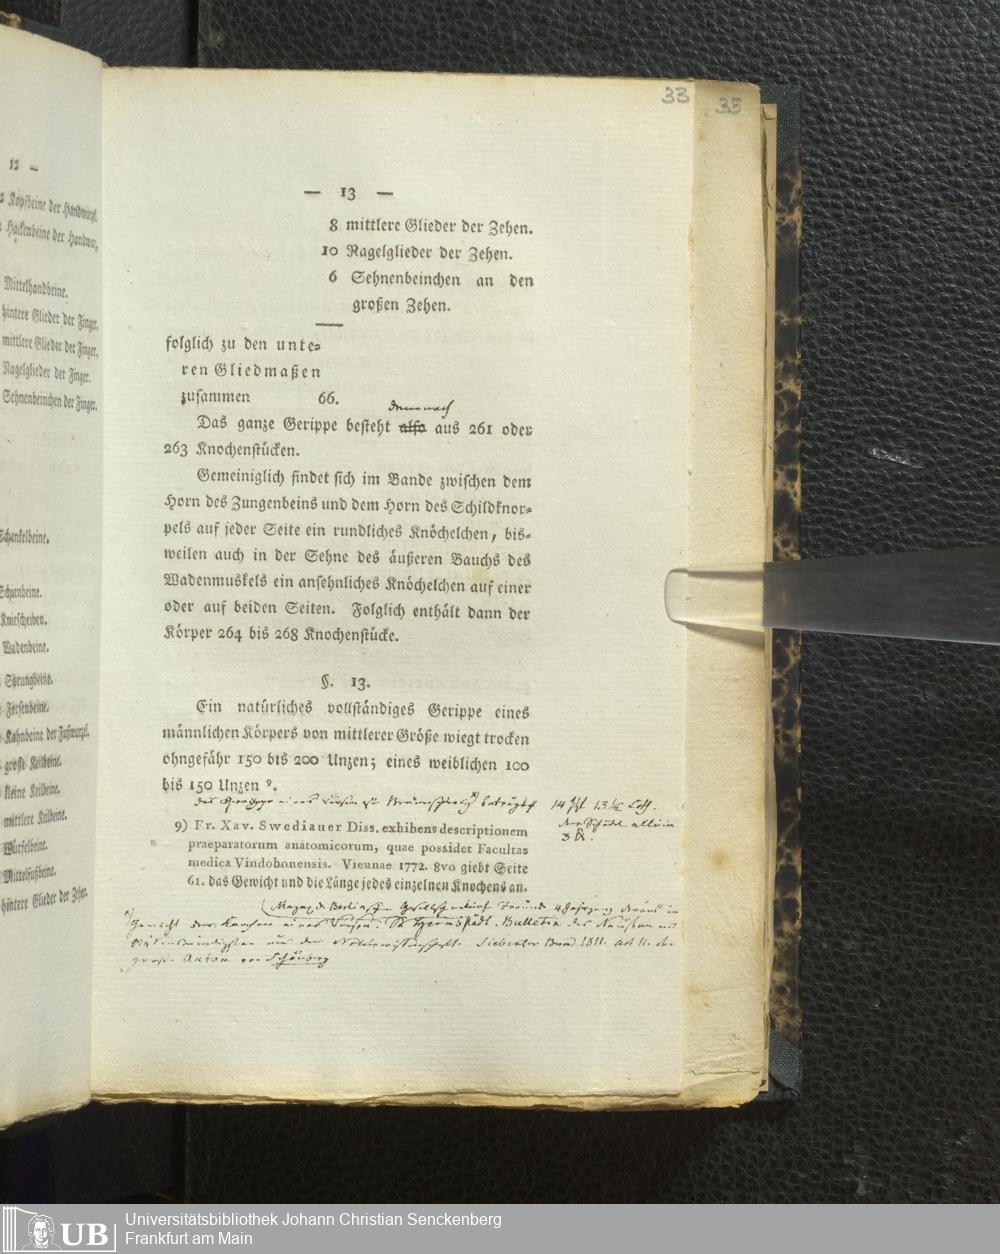 33
33
12 —
Kopfbeine der Handwurzl.
Hackenbeine der Handwur.
Mittelhandbeine.
hintere Glieder der Finger.
mittlere Glieder der Finger.
Nagelglieder der Finger.
Sehnenbeinchen der Finger.
Schenkelbeine.
Schienbeine.
Kniescheiben.
Wadenbeine.
Sprungbeine.
Fersenbeine.
Kahnbeine der Fußwurzl.
große Keilbeine.
kleine Keilbeine.
mittlere Keilbeine.
Würfelbeine.
Mittelfußbeine.
hintere Glieder der Zehen.
— 13 —
8 mittlere Glieder der Zehen.
10 Nagelglieder der Zehen.
6 Sehnenbeinchen an den
großen Zehen.
folglich zu den unte=
ren Gliedmaßen
zusammen 66.
demnach
Das ganze Gerippe besteht also aus 261 oder
263 Knochenstücken.
Gemeiniglich findet sich im Bande zwischen dem
Horn des Zungenbeins und dem Horn des Schildknor=
pels auf jeder Seite ein rundliches Knöchelchen, bis=
weilen auch in der Sehne des äußeren Bauchs des
Wadenmuskels ein ansehnliches Knöchelchen auf einer
oder auf beiden Seiten. Folglich enthält dann der
Körper 264 bis 268 Knochenstücke.
§. 13.
Ein natürliches vollständiges Gerippe eines
männlichen Körpers von mittlerer Größe wiegt trocken
ohngefähr 150 bis 200 Unzen; eines weiblichen 100
bis 150 Unzen 9.
das Gerippe eines Riesen zu beträgt 14 13 Loth.
der Schädel allein
3 ℔.
9) Fr. Xav. Swediauer Diss. exhibens descriptionem
praeparatorum anatomicorum, quae possidet Facultas
medica Vindobonensis. Viennae 1772. 8vo giebt Seite
61. das Gewicht und die Länge jedes einzelnen Knochens an.
Magaz. d. Berlinischen Gesellsch. naturf. Freunde 4 Jahrgang
Gewicht der Knochen eines Riesen. Hermbstädt. Bulletin des Neuesten und
aus der Naturwissenschaft. Siebenter Band 1811.
Anton
UB
Universitätsbibliothek Johann Christian Senckenberg
Frankfurt am Main